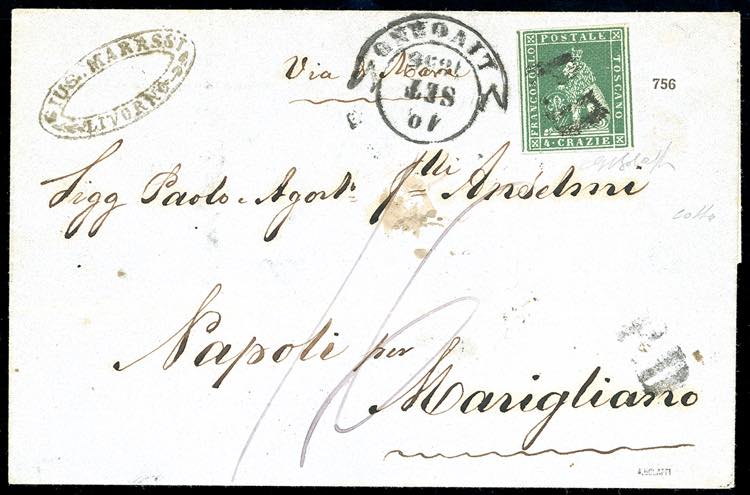 GIUS. MARASSI
LIVORNO
Via di Mare
LIVORNO
1856
SET
10
FRANCOBOLLO
POSTALE
TOSCANO
4·CRAZIE
P D
756
Sigg Paolo e Agost.º f.lli Anselmi
16
Napoli per
Marigliano
P.D
A.BOLAFFI